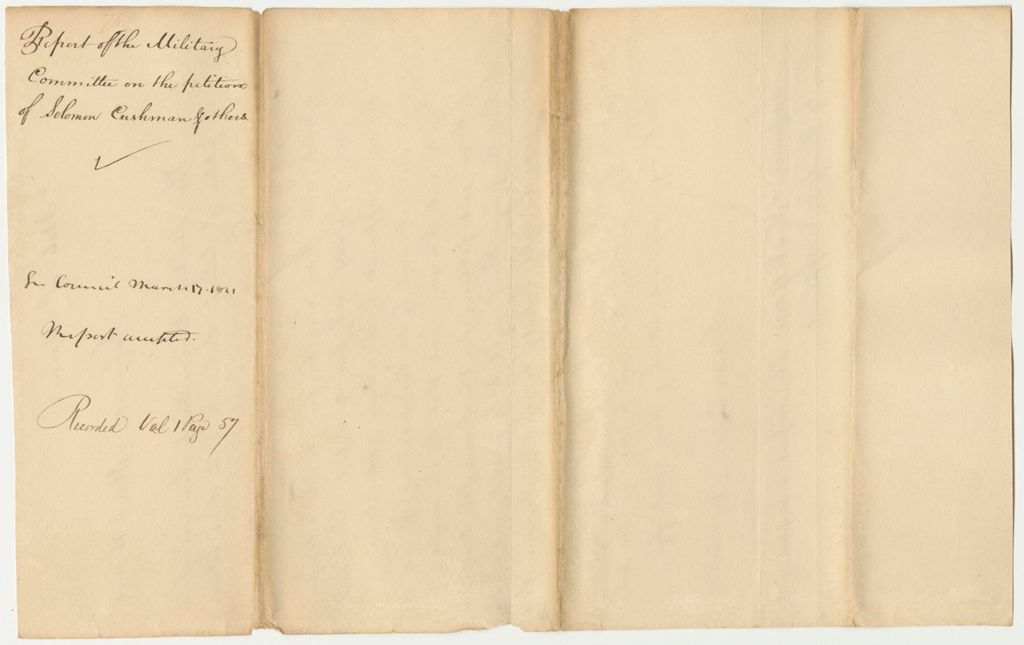 Report of the Military
Committee on the petition
of Solomon Cushman & others
In Council March 17. 1821
Report accepted.
Recorded Vol 1 Page 57